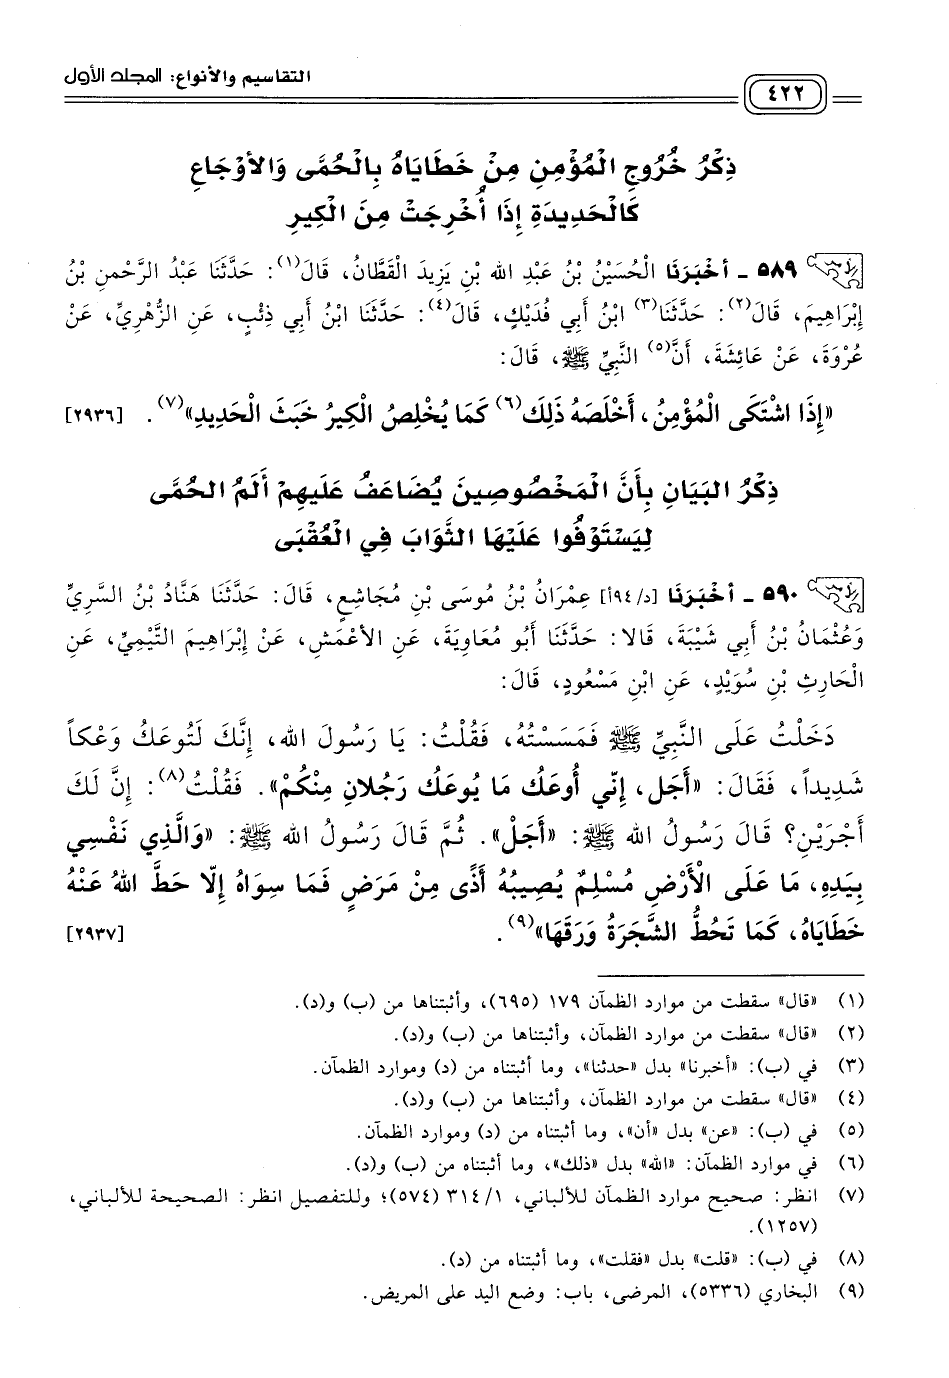 التقاسيم والأنواع: المجلد الأول
٤٢٢
ذِكْرُ خُرُوجِ الْمُؤْمِنِ مِنْ خَطَايَاهُ بِالْحُمَّى وَالأَوْجَاعِ
كَالْحَدِيدَةِ إِذَا أُخْرِجَتْ مِنَ الْكِيرِ
٥٨٩ - أَخْبَرَنَا الْحُسَيْنُ بْنُ عَبْدِ اللهِ بْنِ يَزِيدَ الْقَطَّانُ، قَالَ(١): حَدَّثَنَا عَبْدُ الرَّحْمنِ بْنُ
إِبْرَاهِيمَ، قَالَ(٢): حَدَّثَنَا(٣) ابْنُ أَبِي فُدَيْكٍ، قَالَ(٤): حَدَّثَنَا ابْنُ أَبِي ذِئْبٍ، عَنِ الزُّهْرِيِّ، عَنْ
عُرْوَةَ، عَنْ عَائِشَةَ، أَنَّ(٥) النَّبِيَّ ﷺ، قَالَ:
«إِذَا اشْتَكَى الْمُؤْمِنُ، أَخْلَصَهُ ذَلِكَ(٦) كَمَا يُخْلِصُ الْكِيرُ خَبَثَ الْحَدِيدِ»(٧). [٢٩٣٦]
ذِكْرُ الْبَيَانِ بِأَنَّ الْمَخْصُوصِينَ يُضَاعَفُ عَلَيهِمْ أَلَمُ الحُمَّى
لِيَسْتَوْفُوا عَلَيْهَا الثَّوَابَ فِي الْعُقْبَى
٥٩٠ - أَخْبَرَنَا [د/٩٤أ] عِمْرَانُ بْنُ مُوسَى بْنِ مُجَاشِعٍ، قَالَ: حَدَّثَنَا هَنَّادُ بْنُ السَّرِيِّ
وَعُثْمَانُ بْنُ أَبِي شَيْبَةَ، قَالا: حَدَّثَنَا أَبُو مُعَاوِيَةَ، عَنِ الأَعْمَشِ، عَنْ إِبْرَاهِيمَ التَّيْمِيِّ، عَنِ
الْحَارِثِ بْنِ سُوَيْدٍ، عَنِ ابْنِ مَسْعُودٍ، قَالَ:
دَخَلْتُ عَلَى النَّبِيِّ ﷺ فَمَسَسْتُهُ، فَقُلْتُ: يَا رَسُولَ اللهِ، إِنَّكَ لَتُوعَكُ وَعْكاً
شَدِيداً، فَقَالَ: «أَجَل، إِنِّي أُوعَكُ مَا يُوعَكُ رَجُلانِ مِنْكُمْ». فَقُلْتُ(٨): إِنَّ لَكَ
أَجْرَيْنِ؟ قَالَ رَسُولُ اللهِ ﷺ: «أَجَلْ». ثُمَّ قَالَ رَسُولُ اللهِ ﷺ: «وَالَّذِي نَفْسِي
بِيَدِهِ، مَا عَلَى الْأَرْضِ مُسْلِمٌ يُصِيبُهُ أَذًى مِنْ مَرَضٍ فَمَا سِوَاهُ إِلّا حَطَّ اللهُ عَنْهُ
خَطَايَاهُ، كَمَا تَحُطُّ الشَّجَرَةُ وَرَقَهَا»(٩). [٢٩٣٧]
(١) «قال» سقطت من موارد الظمآن ١٧٩ (٦٩٥)، وأثبتناها من (ب) و(د).
(٢) «قال» سقطت من موارد الظمآن، وأثبتناها من (ب) و(د).
(٣) في (ب): «أخبرنا» بدل «حدثنا»، وما أثبتناه من (د) وموارد الظمآن.
(٤) «قال» سقطت من موارد الظمآن، وأثبتناها من (ب) و(د).
(٥) في (ب): «عن» بدل «أن»، وما أثبتناه من (د) وموارد الظمآن.
(٦) في موارد الظمآن: «الله» بدل «ذلك»، وما أثبتناه من (ب) و(د).
(٧) انظر: صحيح موارد الظمآن للألباني، ٣١٤/١ (٥٧٤)؛ وللتفصيل انظر: الصحيحة للألباني،
(١٢٥٧).
(٨) في (ب): «قلت» بدل «فقلت»، وما أثبتناه من (د).
(٩) البخاري (٥٣٣٦)، المرضى، باب: وضع اليد على المريض.